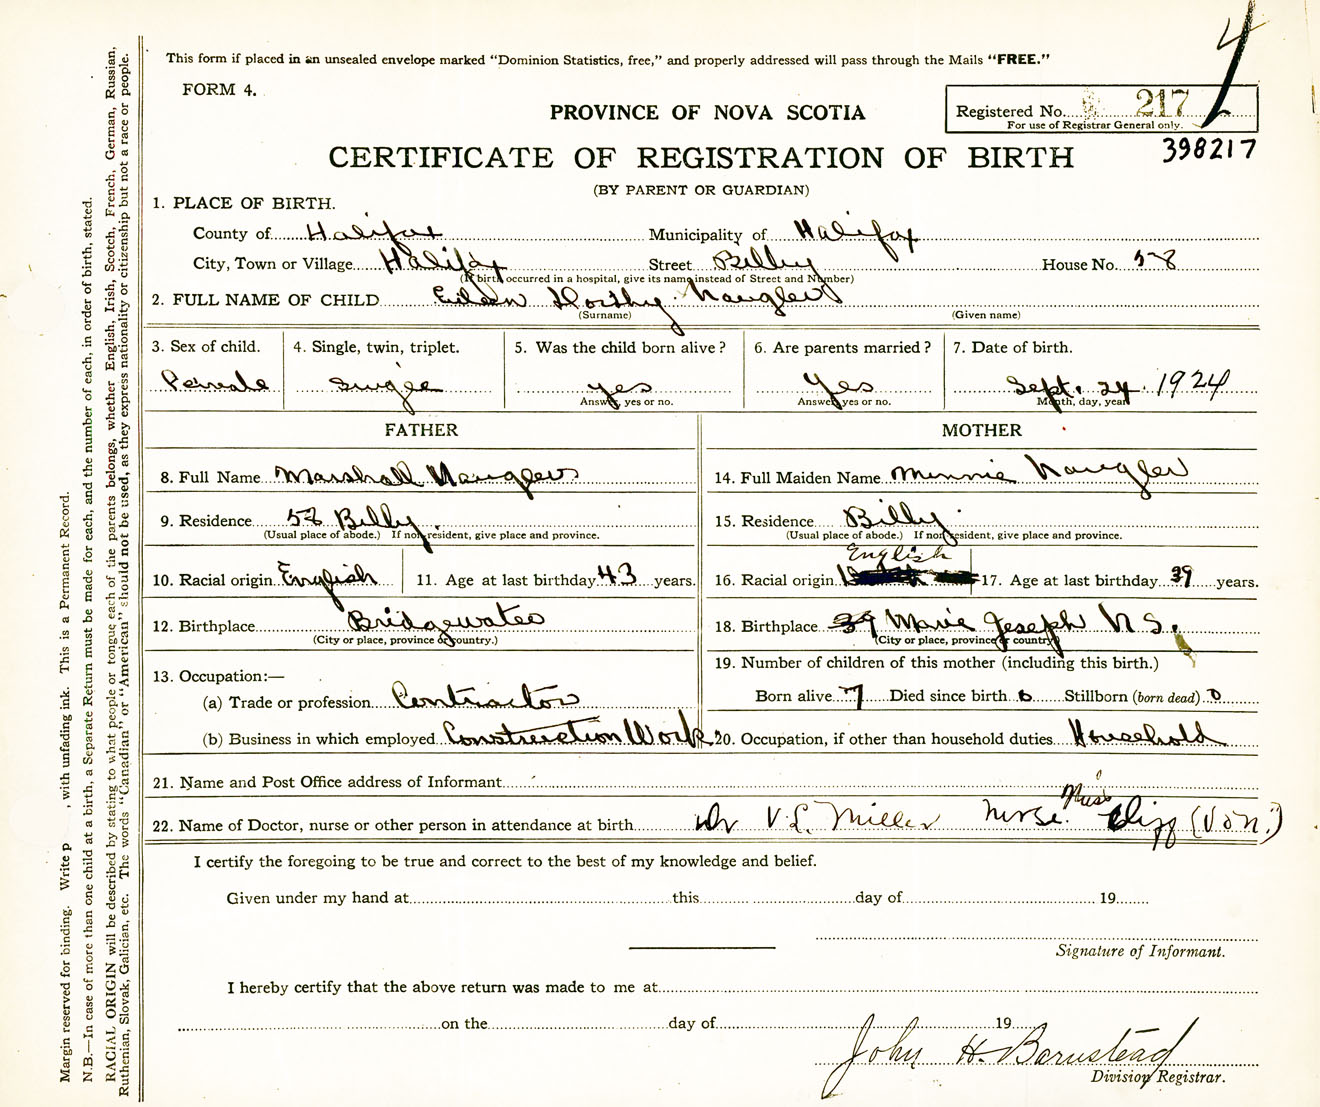 4
This form if placed in an unsealed envelope marked "Dominion Statistics, free," and properly addressed will pass through the Mails "FREE."
FORM 4.
PROVINCE OF NOVA SCOTIA
Registered No. 217
For use of Registrar General only.
398217
CERTIFICATE OF REGISTRATION OF BIRTH
(BY PARENT OR GUARDIAN)
1. PLACE OF BIRTH.
County of Halifax Municipality of Halifax
City, Town or Village Halifax Street Bilby House No. 58
(If birth occurred in a hospital, give its name instead of Street and Number)
2. FULL NAME OF CHILD Eileen Dorthy Naugler
(Surname) (Given name)
3. Sex of child. 4. Single, twin, triplet. 5. Was the child born alive? 6. Are parents married? 7. Date of birth.
Female Single yes Yes Sept. 24. 1924
Answer, yes or no. Answer, yes or no. Month, day, year
FATHER MOTHER
8. Full Name Marshall Naugler 14. Full Maiden Name Minnie Naugler
9. Residence 58 Bilby. 15. Residence Bilby.
(Usual place of abode.) If non-resident, give place and province. (Usual place of abode.) If non-resident, give place and province.
English
10. Racial origin English 11. Age at last birthday 43 years. 16. Racial origin 17. Age at last birthday 39 years.
12. Birthplace Bridgewater 18. Birthplace 39 Marie Joseph N S.
(City or place, province or country.) (City or place, province or country)
13. Occupation:— 19. Number of children of this mother (including this birth.)
(a) Trade or profession Contractor Born alive 7 Died since birth 0 Stillborn (born dead) 0
(b) Business in which employed Construction Work 20. Occupation, if other than household duties Household
21. Name and Post Office address of Informant
22. Name of Doctor, nurse or other person in attendance at birth Dr V. L. Miller Nurse. Miss (V.O.N.)
I certify the foregoing to be true and correct to the best of my knowledge and belief.
Given under my hand at this day of 19
Signature of Informant.
I hereby certify that the above return was made to me at
on the day of 19
John H. Barnstead
Division Registrar.
Margin reserved for binding. Write p , with unfading ink. This is a Permanent Record.
N.B.—In case of more than one child at a birth, a Separate Return must be made for each, and the number of each, in order of birth, stated.
RACIAL ORIGIN will be described by stating to what people or tongue each of the parents belongs, whether English, Irish, Scotch, French, German, Russian,
Ruthenian, Slovak, Galician, etc. The words "Canadian" or "American" should not be used, as they express nationality or citizenship but not a race or people.